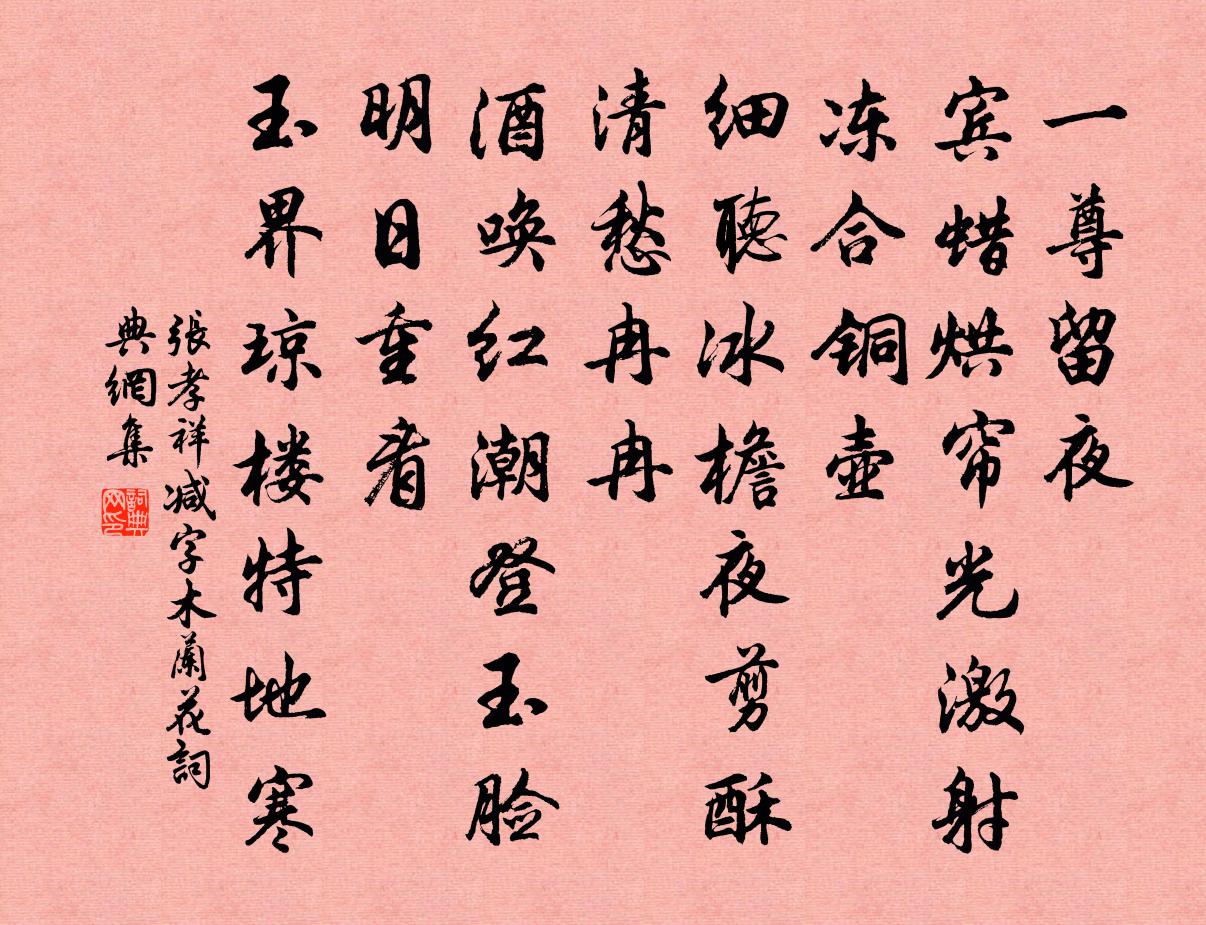 一尊留夜
宾蜡烘帘光激射
冻合铜壶
细聽冰檐夜剪酥
清愁冉冉
酒唤红潮登玉脸
明日重看
玉界琼楼特地寒
張孝祥减字木蘭花詞
典網集
詞典网印